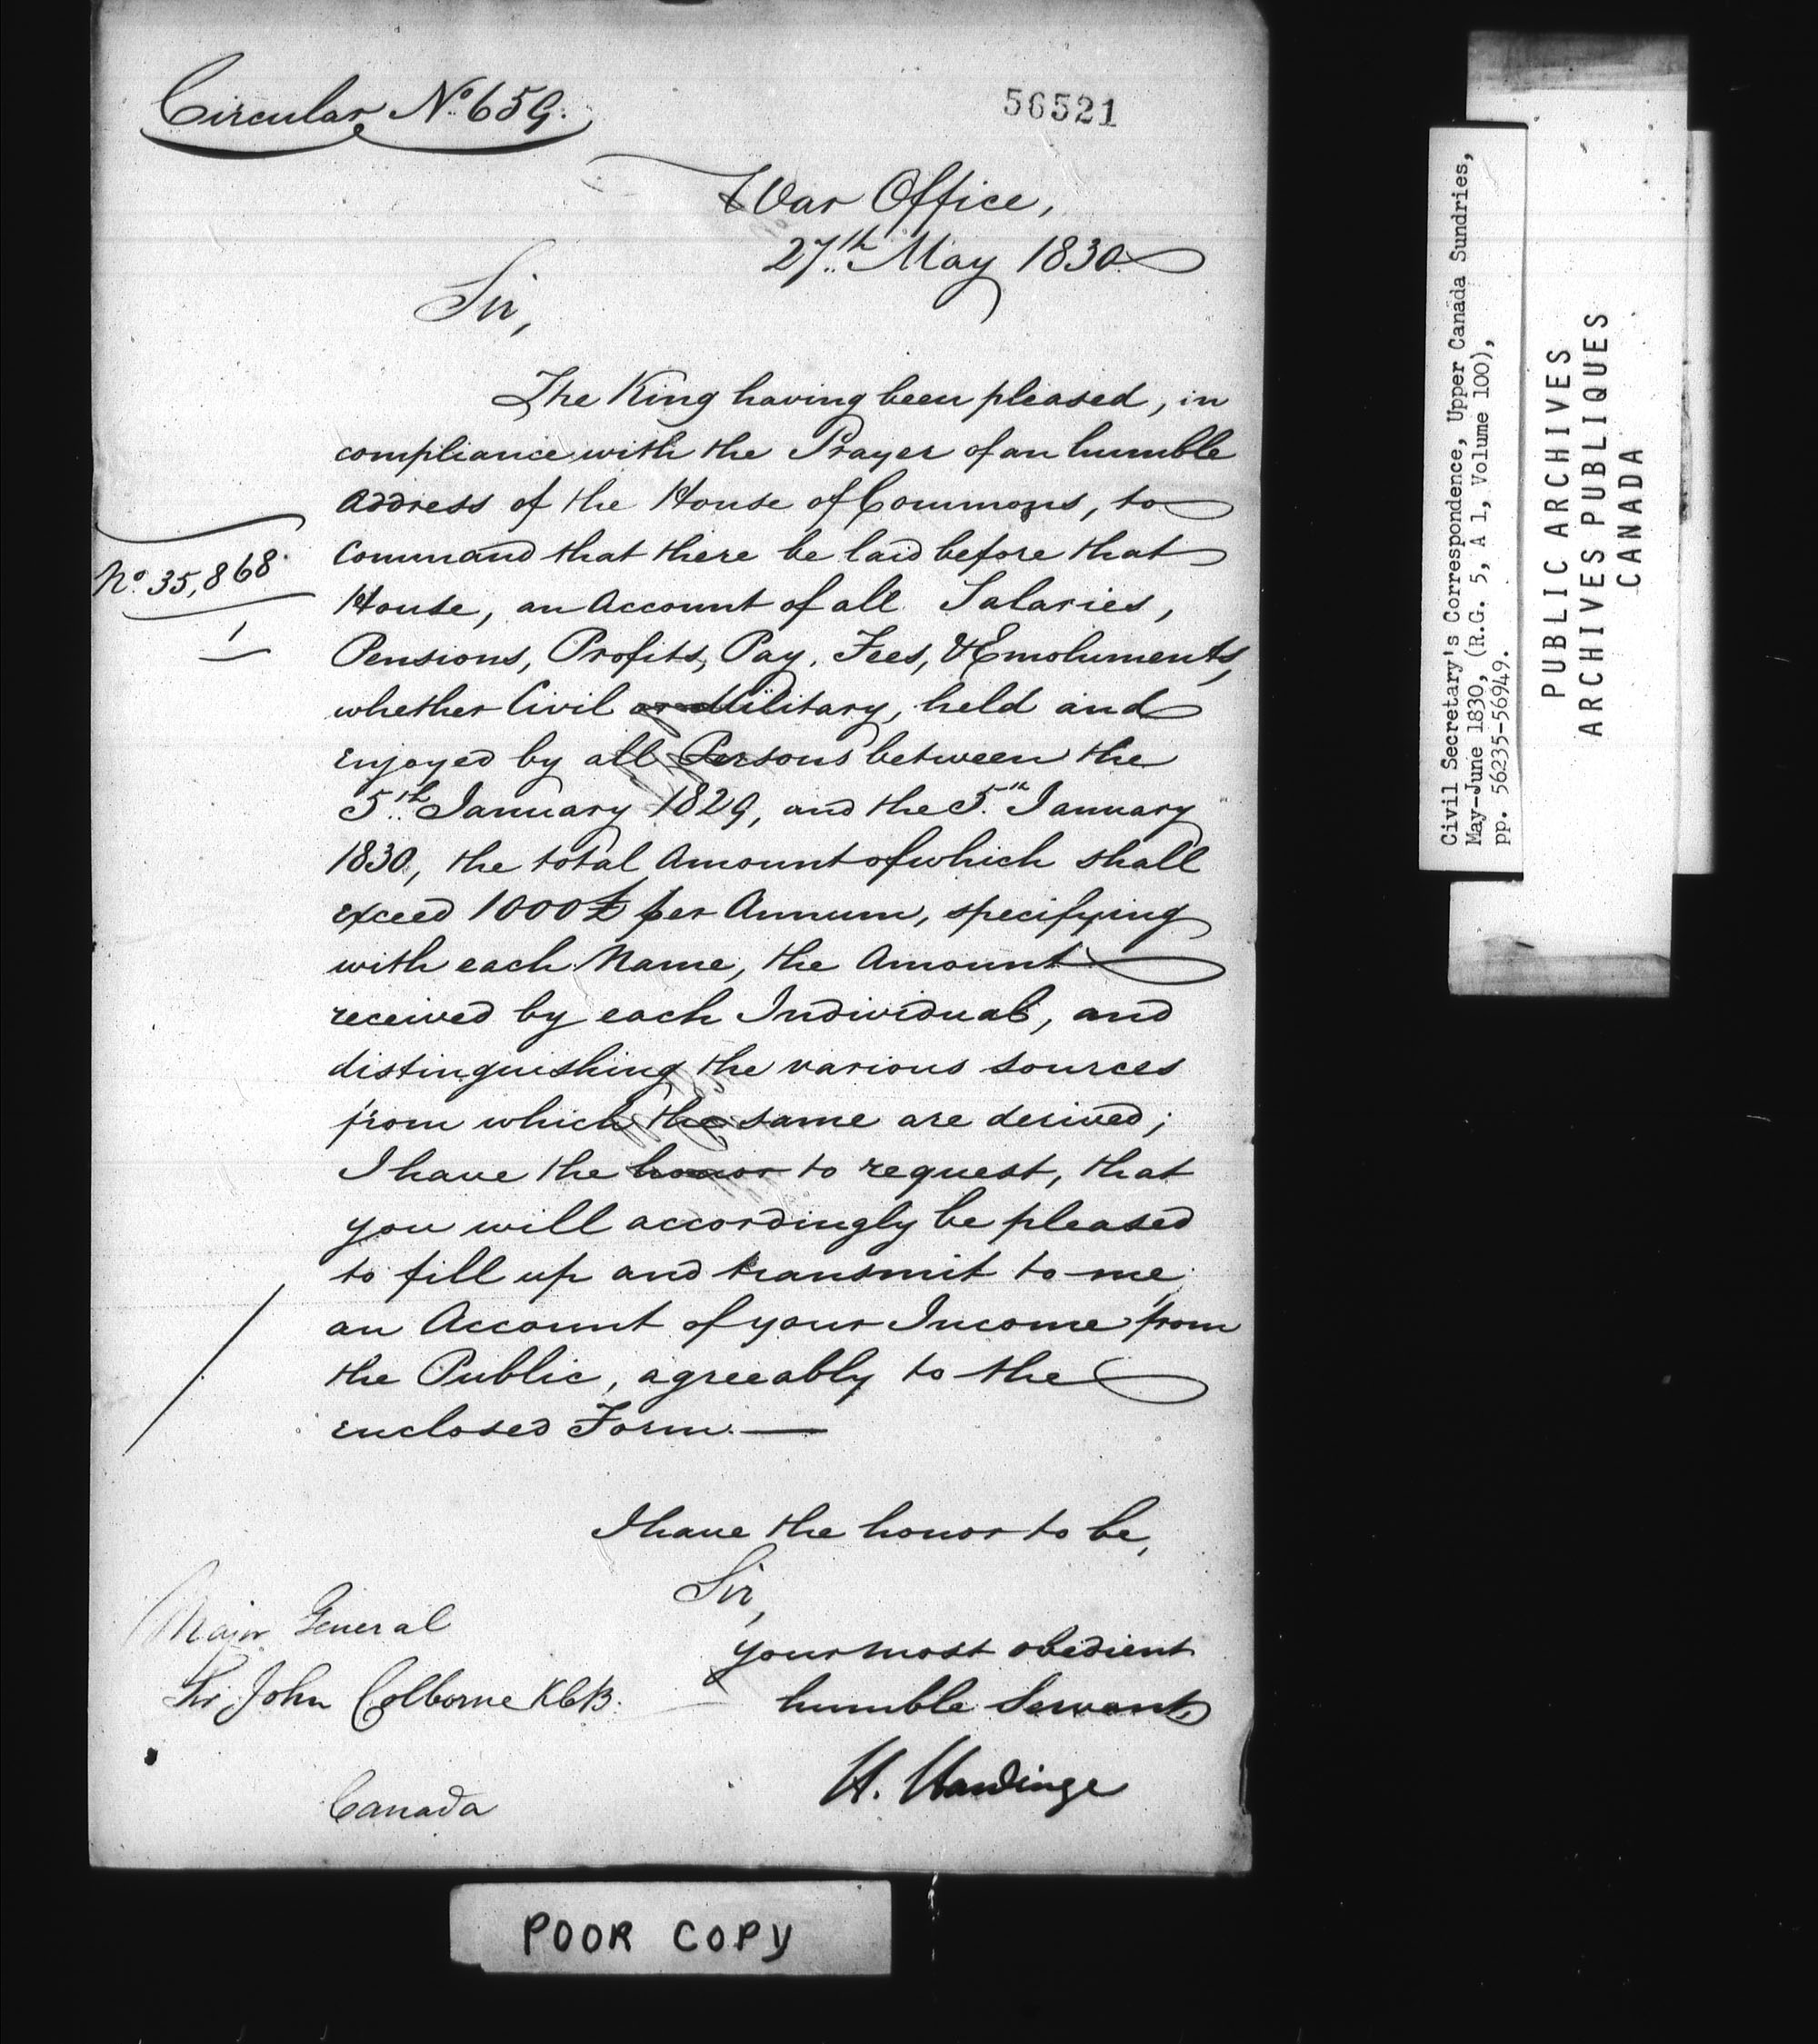 Circular No. 659.
56521
War Office,
27th May 1830
Sir,
The King having been pleased, in
compliance with the Prayer of an humble
Address of the House of Commons, to
Command that there be laid before that
House, an Account of all Salaries,
Pensions, Profits, Pay, Fees, & Emoluments,
whether Civil or Military, held and
enjoyed by all Persons between the
5th January 1829, and the 5th January
1830, the total Amount of which shall
exceed 1000£ per Annum, specifying
with each Name, the Amount
received by each Individual, and
distinguishing the various sources
from which the same are derived;
I have the honor to request, that
you will accordingly be pleased
to fill up and transmit to me
an Account of your Income from
the Public, agreeably to the
enclosed Form.—
No. 35,868.
1
I have the honor to be,
Sir,
your most obedient
humble Servant,
H. Hardinge
Major General
Sir John Colborne KCB.
Canada
POOR COPY
Civil Secretary's Correspondence, Upper Canada Sundries,
May-June 1830, (R.G. 5, A 1, Volume 100),
pp. 56235-56949.
PUBLIC ARCHIVES
ARCHIVES PUBLIQUES
CANADA